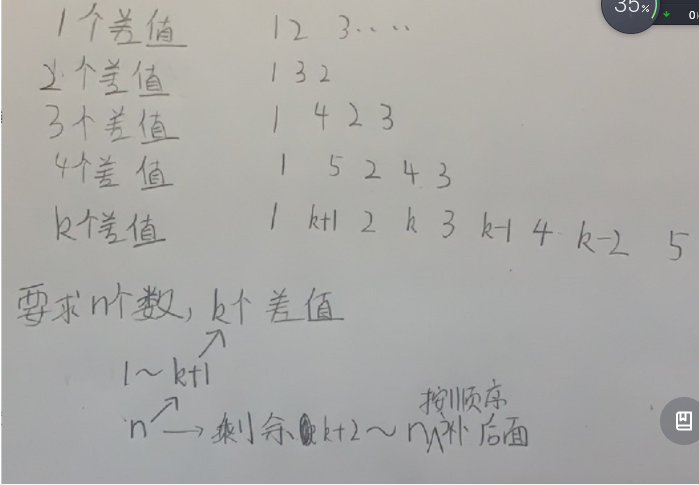 35%
0
1个差值 1 2 3....
2个差值 1 3 2
3个差值 1 4 2 3
4个差值 1 5 2 4 3
k个差值 1 k+1 2 k 3 k-1 4 k-2 5
要求n个数,k个差值
1~k+1
按顺序
n→剩余k+2~n补后面